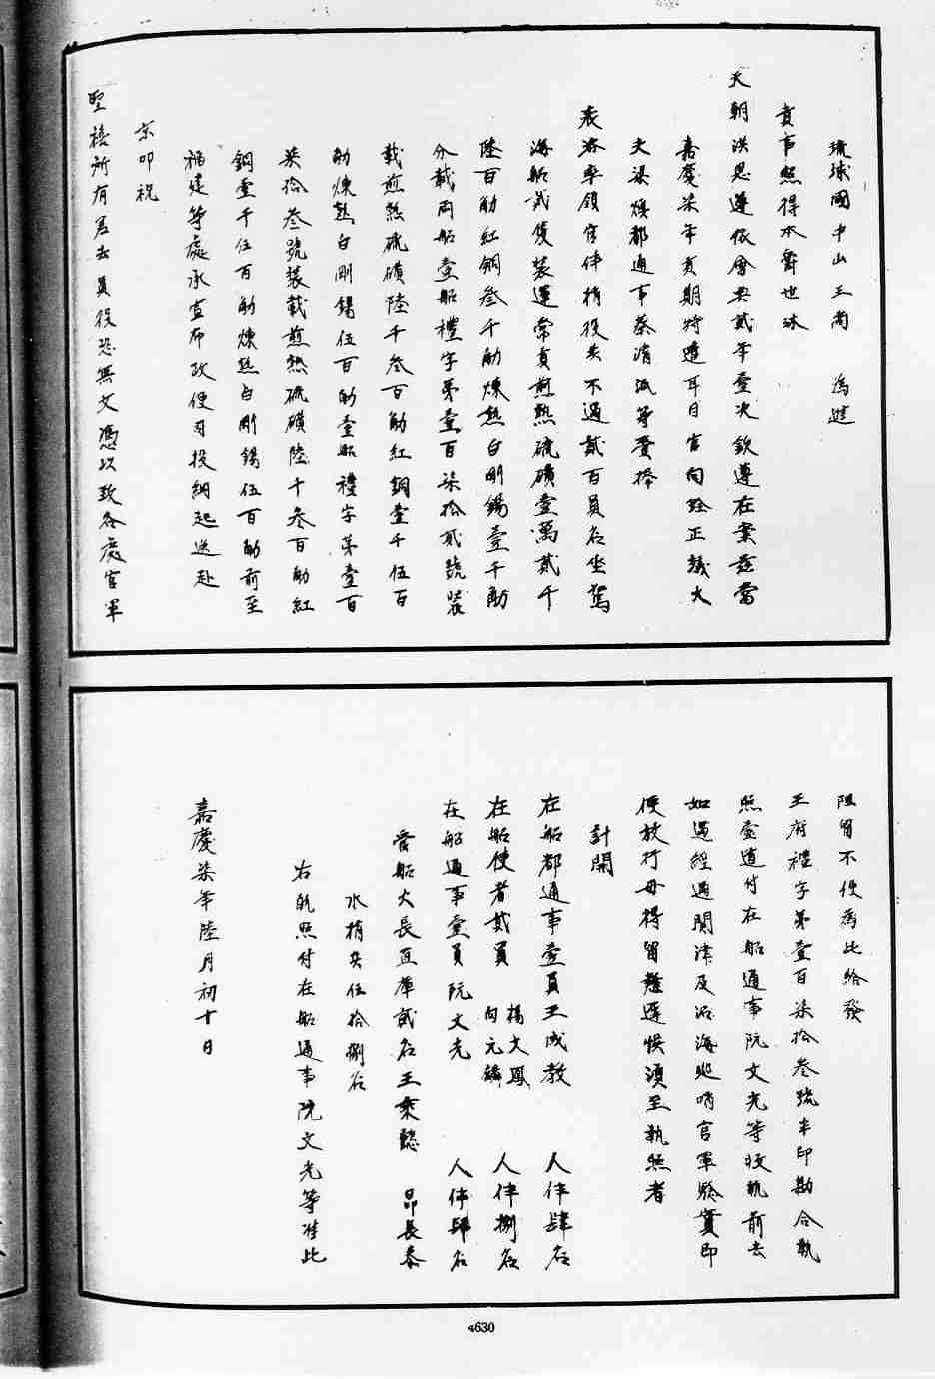 琉球國中山王尚　為進
貢事照得本爵世沐
天朝洪恩遵依會典貳年壹次欽遵在案茲當
嘉慶柒年貢期特遣耳目官向詮正議大
夫梁煥都通事蔡清派等齎捧
表咨率領官伴梢役共不過貳百員名坐駕
海船貳隻裝運常貢煎熟硫磺壹萬貳千
陸百觔紅銅叁千觔煉熟白剛錫壹千觔
分載兩船壹船禮字第壹百柒拾貳號裝
載煎熟硫磺陸千叁百觔紅銅壹千伍百
觔煉熟白剛錫伍百觔壹船禮字第壹百
柒拾叁號裝載煎熟硫磺陸千叁百觔紅
銅壹千伍百觔煉熟白剛錫伍百觔前至
福建等處承宣布政使司投納起送赴
京叩祝
聖禧所有差去員役恐無文憑以致各處官軍
阻留不便為此給發
王府禮字第壹百柒拾叁號半印勘合執
照壹道付在船通事阮文光等收執前去
如遇經過關津及沿海巡哨官軍驗實即
便放行毋得留難遲悞須至執照者
計開
在船都通事壹員王成教　人伴肆名
在船使者貳員　楊文鳳　向元鱗　人伴捌名
在船通事壹員阮文光　人伴肆名
管船火長直庫貳名王秉懿　昂長泰
水梢共伍拾捌名
右執照付在船通事阮文光等准此
嘉慶柒年陸月初十日
4630